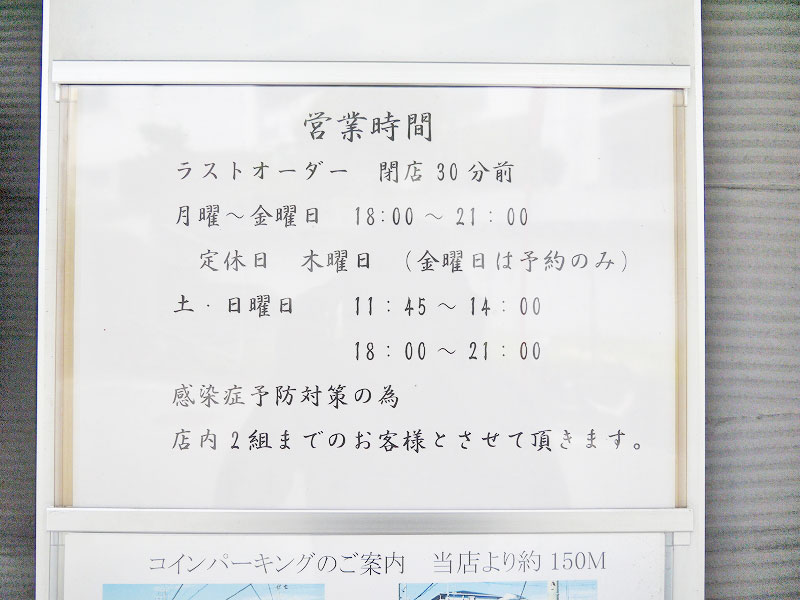 営業時間
ラストオーダー 閉店30分前
月曜～金曜日 18:00～21:00
定休日 木曜日 (金曜日は予約のみ)
土・日曜日 11:45～14:00
18:00～21:00
感染症予防対策の為
店内2組までのお客様とさせて頂きます。
コインパーキングのご案内 当店より約150M